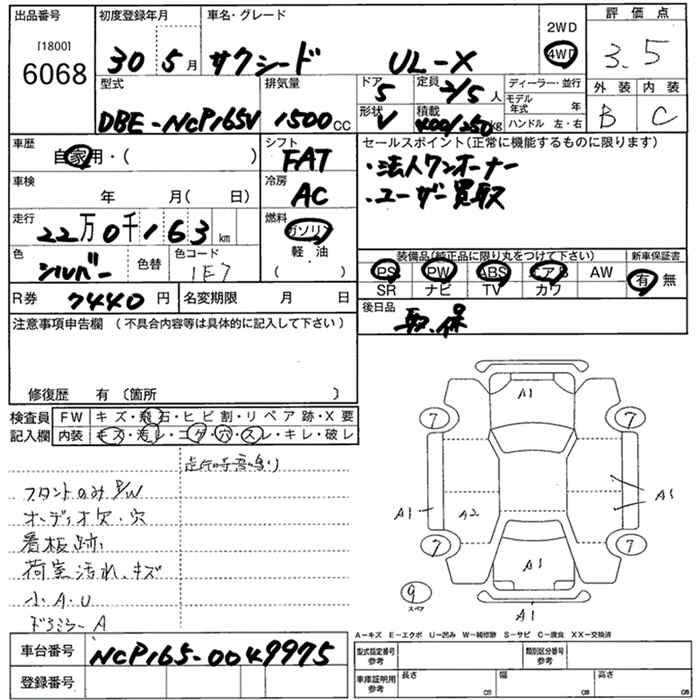 出品番号 初度登録年月 車名・グレード 2WD 評価点
[1800] 6068 30 5月 サクシード UL-X 4WD 3.5
型式 排気量 ドア 定員 ディーラー・並行 外装 内装
DBE-NCP165V 1500CC 5 2/5人 モデル年式 年 B C
形状 積載 ハンドル 左・右
V 400/250kg
車歴 シフト セールスポイント(正常に機能するものに限ります)
自家用・( ) FAT ・法人ワンオーナー
車検 冷房 ・ユーザー買取
年 月( 日) AC
走行 燃料
22万0千163km ガソリン
色 色替 色コード 軽・油 装備品(純正品に限り丸をつけて下さい) 新車保証書
シルバー 1E7 ( ) PS PW ABS エアB AW 有・無
SR ナビ TV カワ
R券 7440円 名変期限 月 日 後日品
取.保
注意事項申告欄(不具合内容等は具体的に記入して下さい)
修復歴 有〔箇所 〕
検査員 FW キズ・飛石・ヒビ割・リペア跡・X要
記入欄 内装 キズ・汚レ・コゲ・穴・スレ・キレ・破レ
走行時異音鳴り
フロントのみP/W
オーディオ欠・穴
看板跡
荷室汚れ.キズ
小A.U
ドアミラーA
A1
7 7
A1 A2 A1
7 7
A1
9
スペア
A1
A-キズ E-エクボ U-凹み W-補修跡 S-サビ C-腐食 XX-交換済
車台番号 NCP165-0049975
型式指定番号 参考 類別区分番号 参考
登録番号 車庫証明用 参考 長さ cm 幅 cm 高さ cm